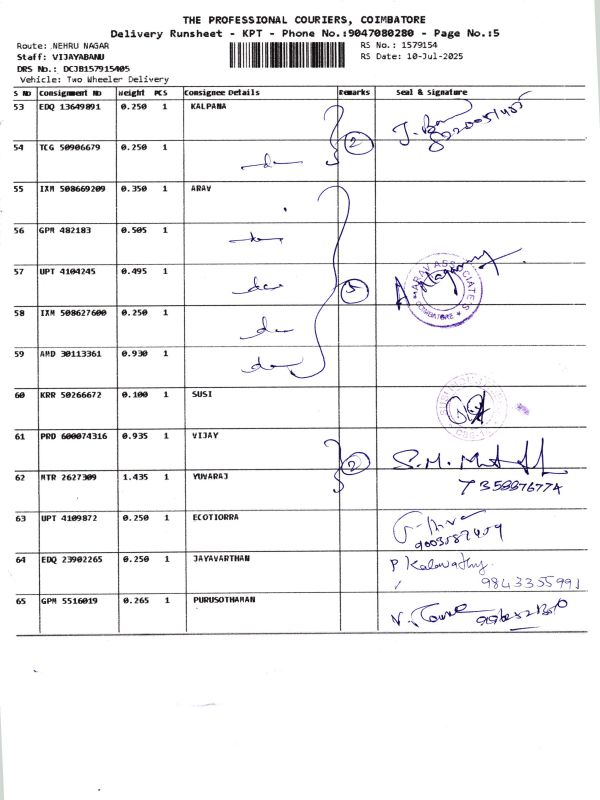 THE PROFESSIONAL COURIERS, COIMBATORE
Delivery Runsheet - KPT - Phone No.:9047080280 - Page No.:5
Route: NEHRU NAGAR RS No.: 1579154
Staff: VIJAYABANU RS Date: 10-Jul-2025
DRS No.: DCJB157915405
Vehicle: Two Wheeler Delivery
S No Consignment No Weight PCS Consignee Details Remarks Seal & Signature
53 EDQ 13649891 0.250 1 KALPANA
2
54 TCG 50906679 0.250 1
55 IXM 508669209 0.350 1 ARAV
56 GPM 482183 0.505 1
57 UPT 4104245 0.495 1
5
ARAV ASSOCIATES
COIMBATORE
58 IXM 508627600 0.250 1
59 AMD 30113361 0.930 1
60 KRR 50266672 0.100 1 SUSI
61 PRD 600074316 0.935 1 VIJAY
2
62 MTR 2627309 1.435 1 YUVARAJ
63 UPT 4109872 0.250 1 ECOTIORRA
64 EDQ 23902265 0.250 1 JAYAVARTHAN
P Kalavathy
9843355991
65 GPM 5516019 0.265 1 PURUSOTHAMAN